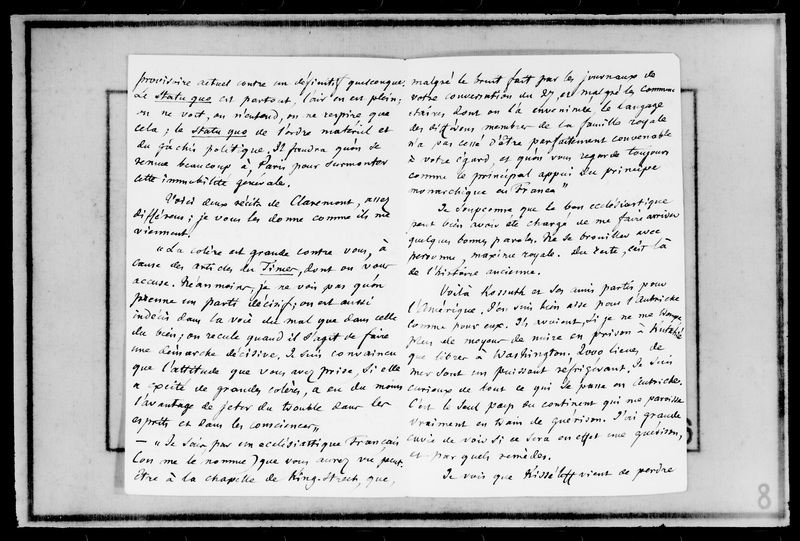 provisoire actuel contre un définitif quelconque.
Le Statu quo est partout, l'air en est plein;
on ne voit, on n'entend, on ne respire que
cela; le Statu quo de l'ordre matériel et
du gâchis politique. Il faudra qu'on se
remue beaucoup à Paris pour surmonter
cette immobilité générale.
Voici deux récits de Claremont, assez
différens; je vous les donne comme ils me
viennent.
"La colère est grande contre vous, à
cause des articles du Times, dont on vous
accuse. Néanmoins, je ne vois pas qu'on
prenne un parti décisif; on est aussi
indécis dans la voie du mal que dans celle
du bien; on recule quand il s'agit de faire
une démarche décisive. Je suis convaincu
que l'attitude que vous avez prise, si elle
a excité de grandes colères, a eu du moins
l'avantage de jeter du trouble dans les
esprits et dans les consciences"
— "Je sais par un ecclésiastique français
(on me le nomme) que vous aurez vu peut-
être à la chapelle de King-Street, que,
malgré le bruit fait par les journaux de
votre conversation du 27, et malgré les commen-
taires dont on l'a envenimée, le langage
des différens membres de la famille royale
n'a pas cessé d'être parfaitement convenable
à votre égard, et qu'on vous regarde toujours
comme le principal appui du principe
monarchique en France"
Je soupçonne que le bon ecclésiastique
peut bien avoir été chargé de me faire arriver
quelques bonnes paroles. Ne se brouiller avec
personne, maxime royale. Du reste, c'est là
de l'histoire ancienne.
Voilà Kossuth et ses amis partis pour
l'Amérique. J'en suis bien aise pour l'Autriche
comme pour eux. Ils avaient, si je ne me trompe
plus de moyens de nuire en prison à Kutahié
que libres à Washington. 2000 lieues de
mer sont un puissant réfrigérant. Je suis
curieux de tout ce qui se passe en Autriche.
C'est le seul pays du continent qui me paraisse
vraiment en train de guérison. J'ai grande
envie de voir si ce sera en effet une guérison,
et par quels remèdes.
Je vois que Kisséleff vient de perdre
8